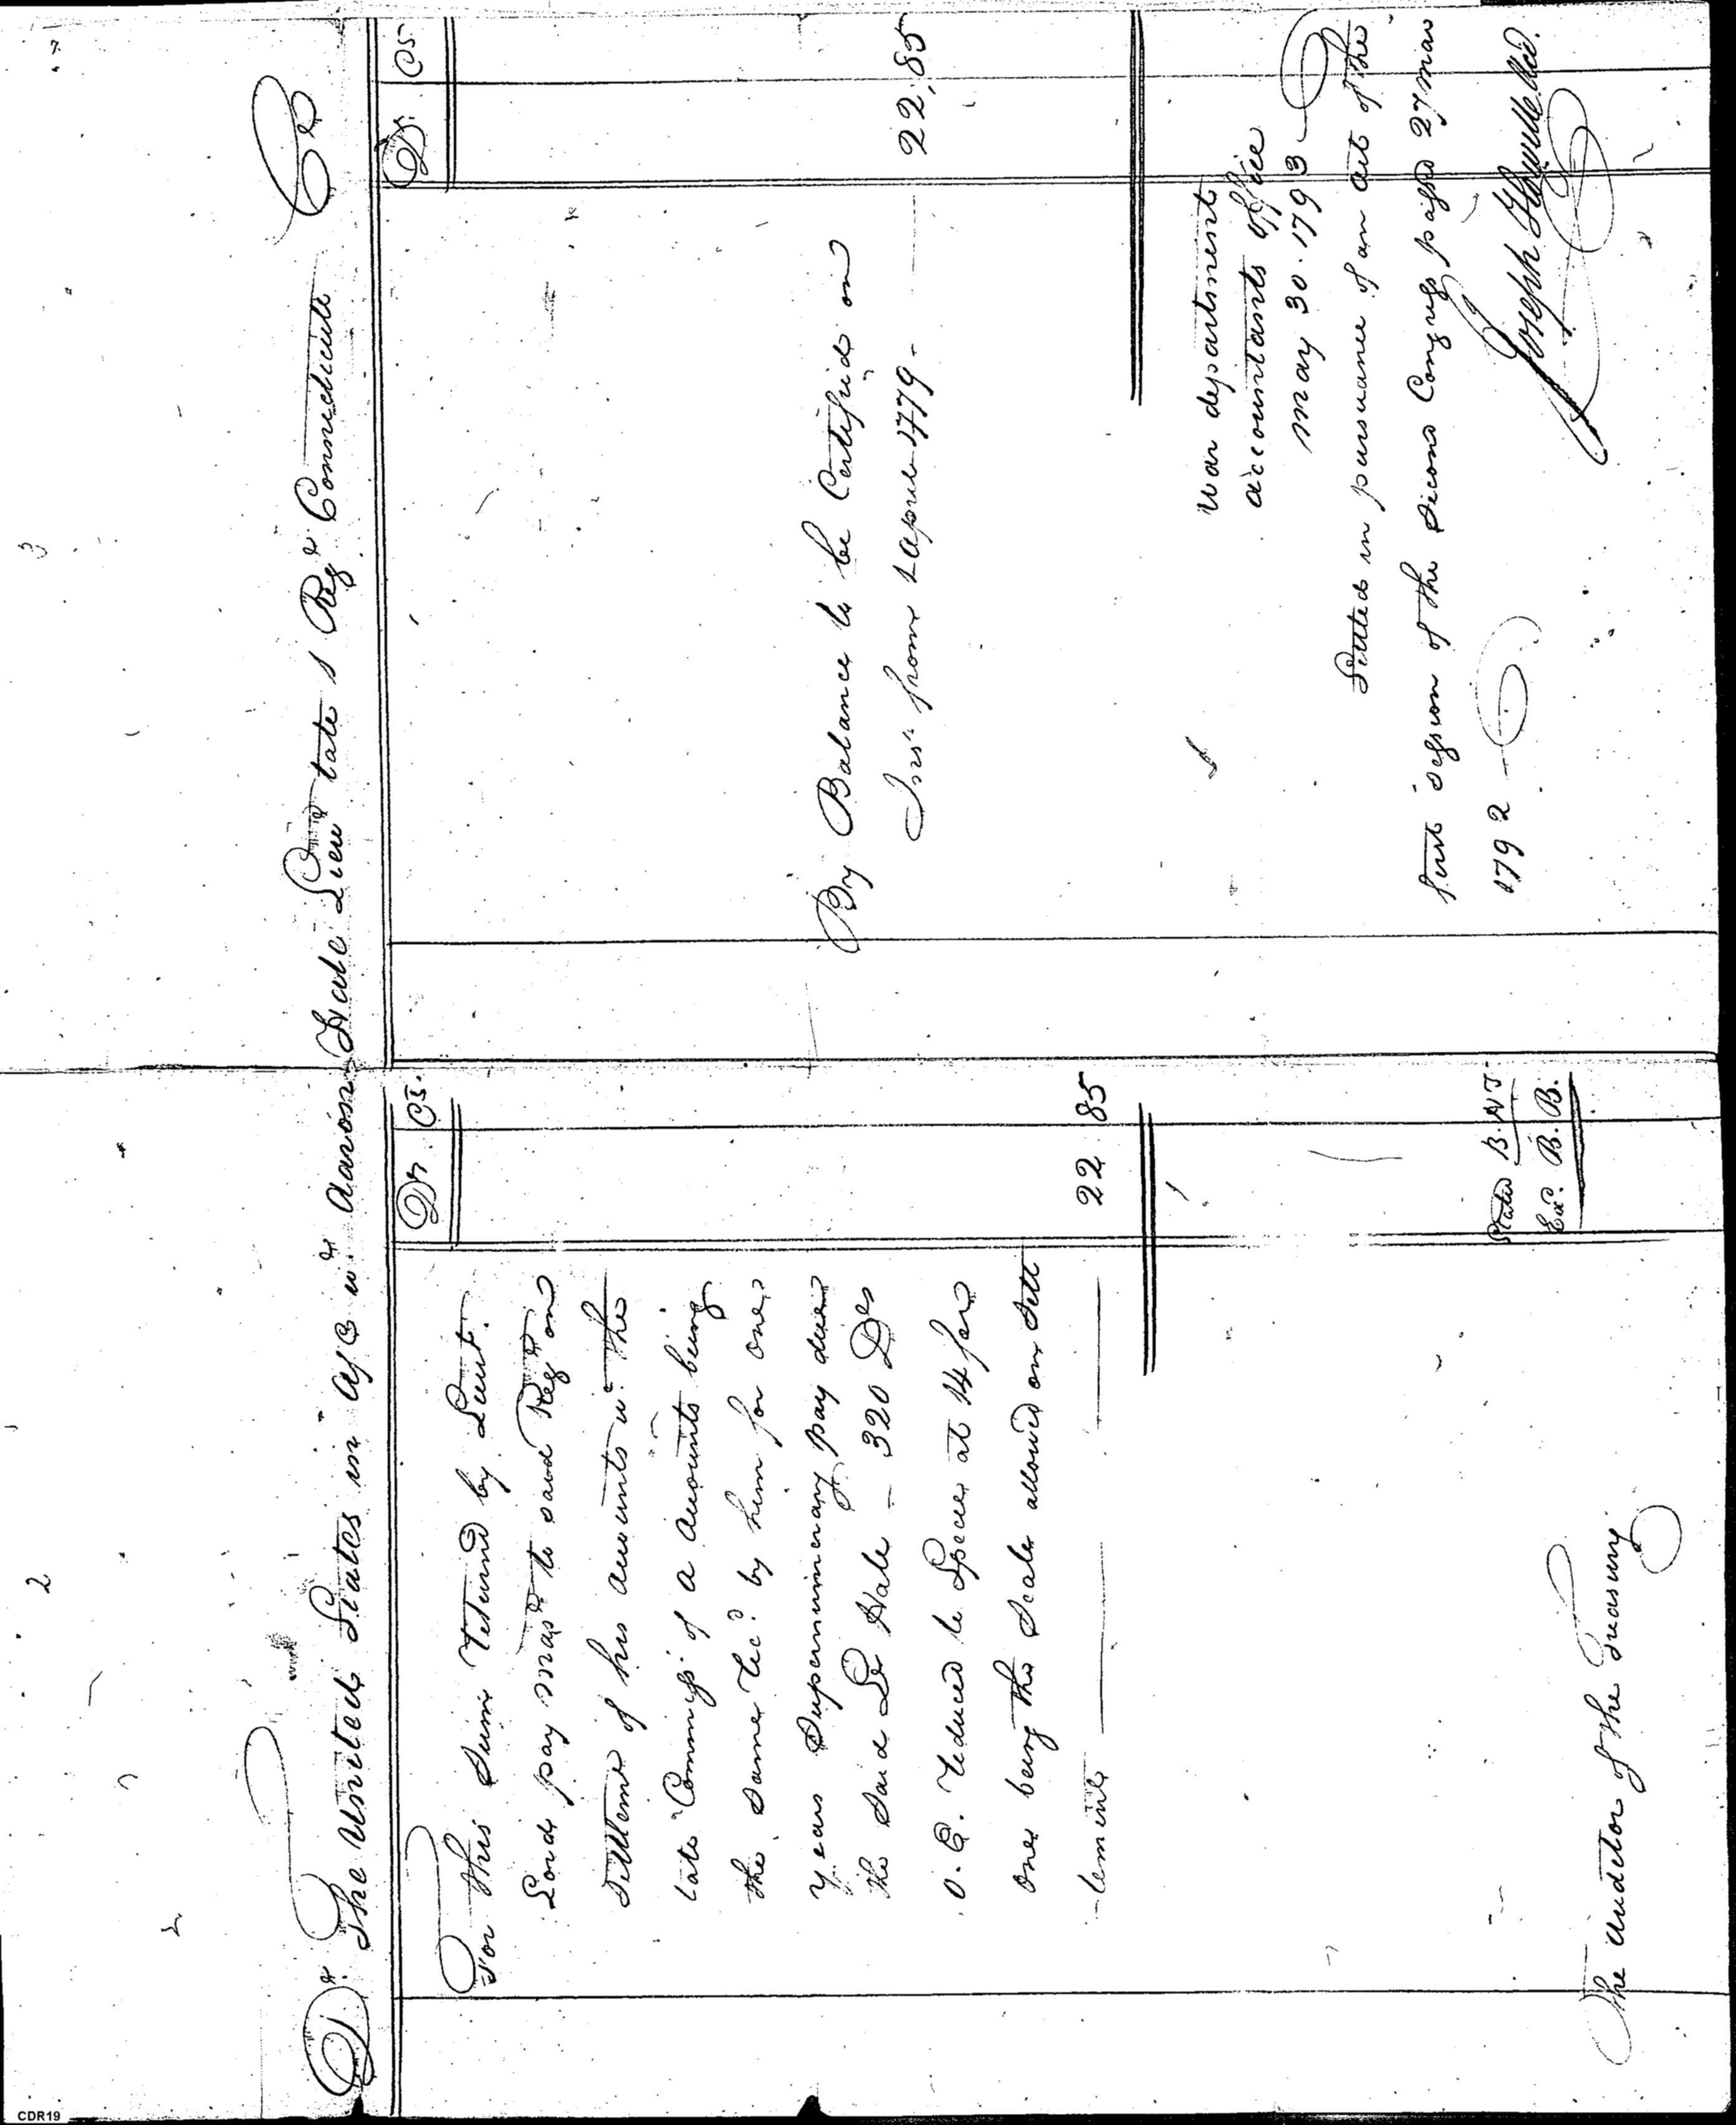 2
3
Dr The United States in a/c wt Aaron Hale Lieut late 1 Regt Connecticutt Cr
Dr. Cs.
For this Sum returnd by Lieut.
Lord pay mast to said Regt on
Settlemt of his accounts wt the
late Commisr of a accounts being
the same recd by him for one
years Supernumerary pay due
the Said Lt Hale - 320 Drs
O. C. reduced to Specie at 14 for
one being the Scale allowed on Sett
lement 22 85
Stated B. N J
Ex. B. B.
The Auditor of the Treasury
D. Cs
By Balance to be Certified on
Int from 1 April 1779 - 22,85
War department
accountants office
May 30. 1793
Settled in pursuance of an act of the
first Session of the Second Congress passd 27 Mar
1792
Joseph Howell Acct.
CDR19